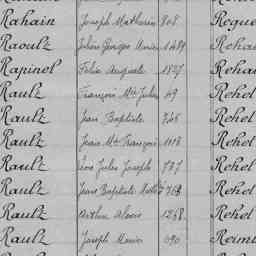 Rahain Joseph Mathurin 808 Rogue
Raoulz Jules Georges Marie 1489 Rehau
Rapinel Félix Auguste 1827 Rehau
Raulz François Mie Jules 49 Rehel
Raulz Jean Baptiste 746 Rehel
Raulz Jean Mie François 1118 Rehel
Raulz Jules Joseph 737 Rehel
Raulz Jean Baptiste 763 Rehel
Raulz Arthur 1258 Rehel
Raulz Joseph Marie 690 Reim